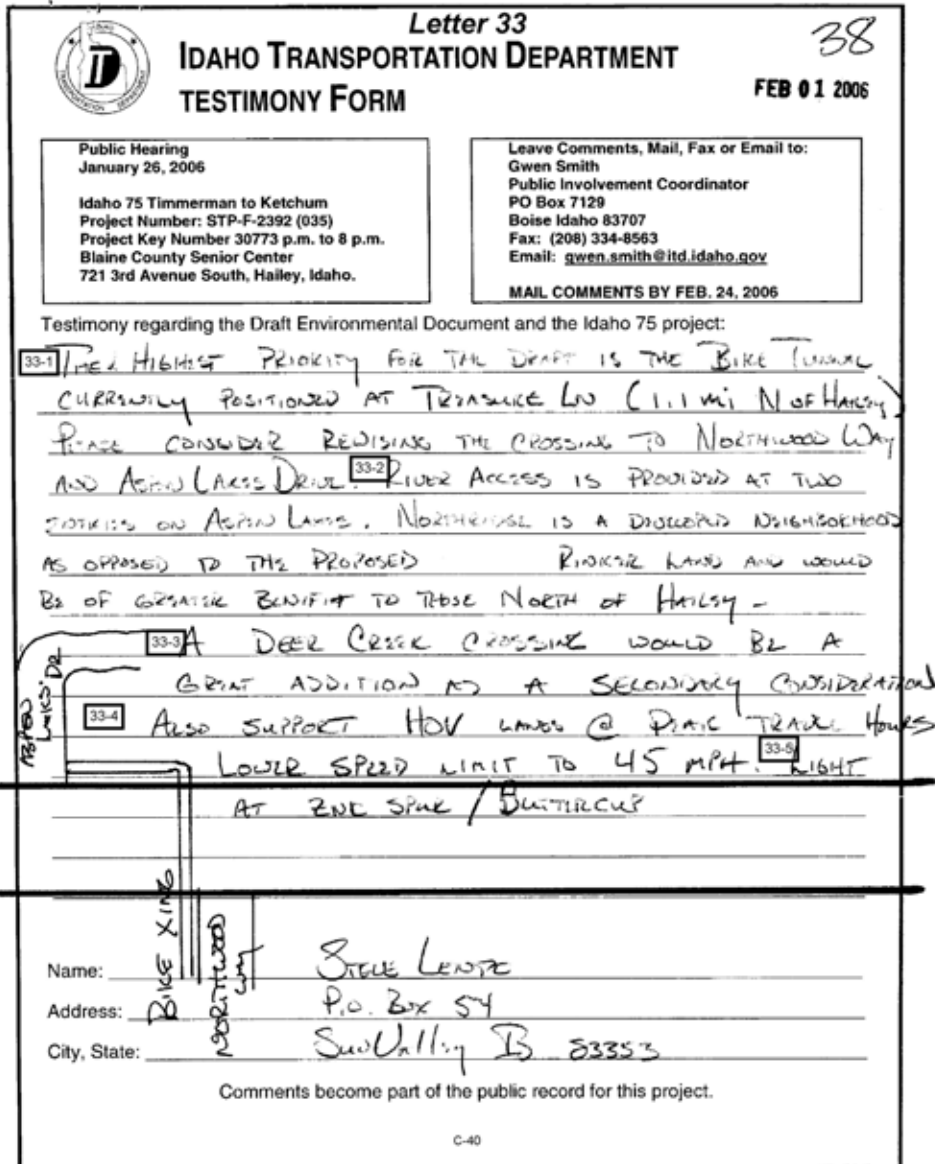 Letter 33
38
IDAHO TRANSPORTATION DEPARTMENT
TESTIMONY FORM
FEB 01 2006
Public Hearing
January 26, 2006
Idaho 75 Timmerman to Ketchum
Project Number: STP-F-2392 (035)
Project Key Number 30773 p.m. to 8 p.m.
Blaine County Senior Center
721 3rd Avenue South, Hailey, Idaho.
Leave Comments, Mail, Fax or Email to:
Gwen Smith
Public Involvement Coordinator
PO Box 7129
Boise Idaho 83707
Fax: (208) 334-8563
Email: gwen.smith@itd.idaho.gov
MAIL COMMENTS BY FEB. 24, 2006
Testimony regarding the Draft Environmental Document and the Idaho 75 project:
33-1 HIGHEST PRIORITY FOR THE DRAFT IS THE BIKE TUNNAL
CURRENTLY POSITIONED AT TREASURE LN (1.1 mi N OF HAILEY)
PLEASE CONSIDER REVISING THE CROSSING TO NORTHWOOD WAY
AND ASPEN LAKES DRIVE. 33-2 RIVER ACCESS IS PROVIDED AT TWO
ENTRIES ON ASPEN LAKES. NORTHRIDGE IS A DEVELOPED NEIGHBORHOOD
AS OPPOSED TO THE PROPOSED RINKER LAND AND WOULD
BE OF GREATER BENIFIT TO THOSE NORTH OF HAILEY -
33-3 A DEER CREEK CROSSING WOULD BE A
GREAT ADDITION AS A SECONDARY CONSIDERATION
33-4 ALSO SUPPORT HOV LANES @ PEAK TRAVEL HOURS
LOWER SPEED LIMIT TO 45 MPH. 33-5 LIGHT
AT ZNC SPUR / BUTTERCUP
ASPEN LAKES DR
BIKE XING
NORTHWOOD WAY
Name: LENTZ
Address: P.O. Box 54
City, State: Sun Valley ID 83353
Comments become part of the public record for this project.
C-40